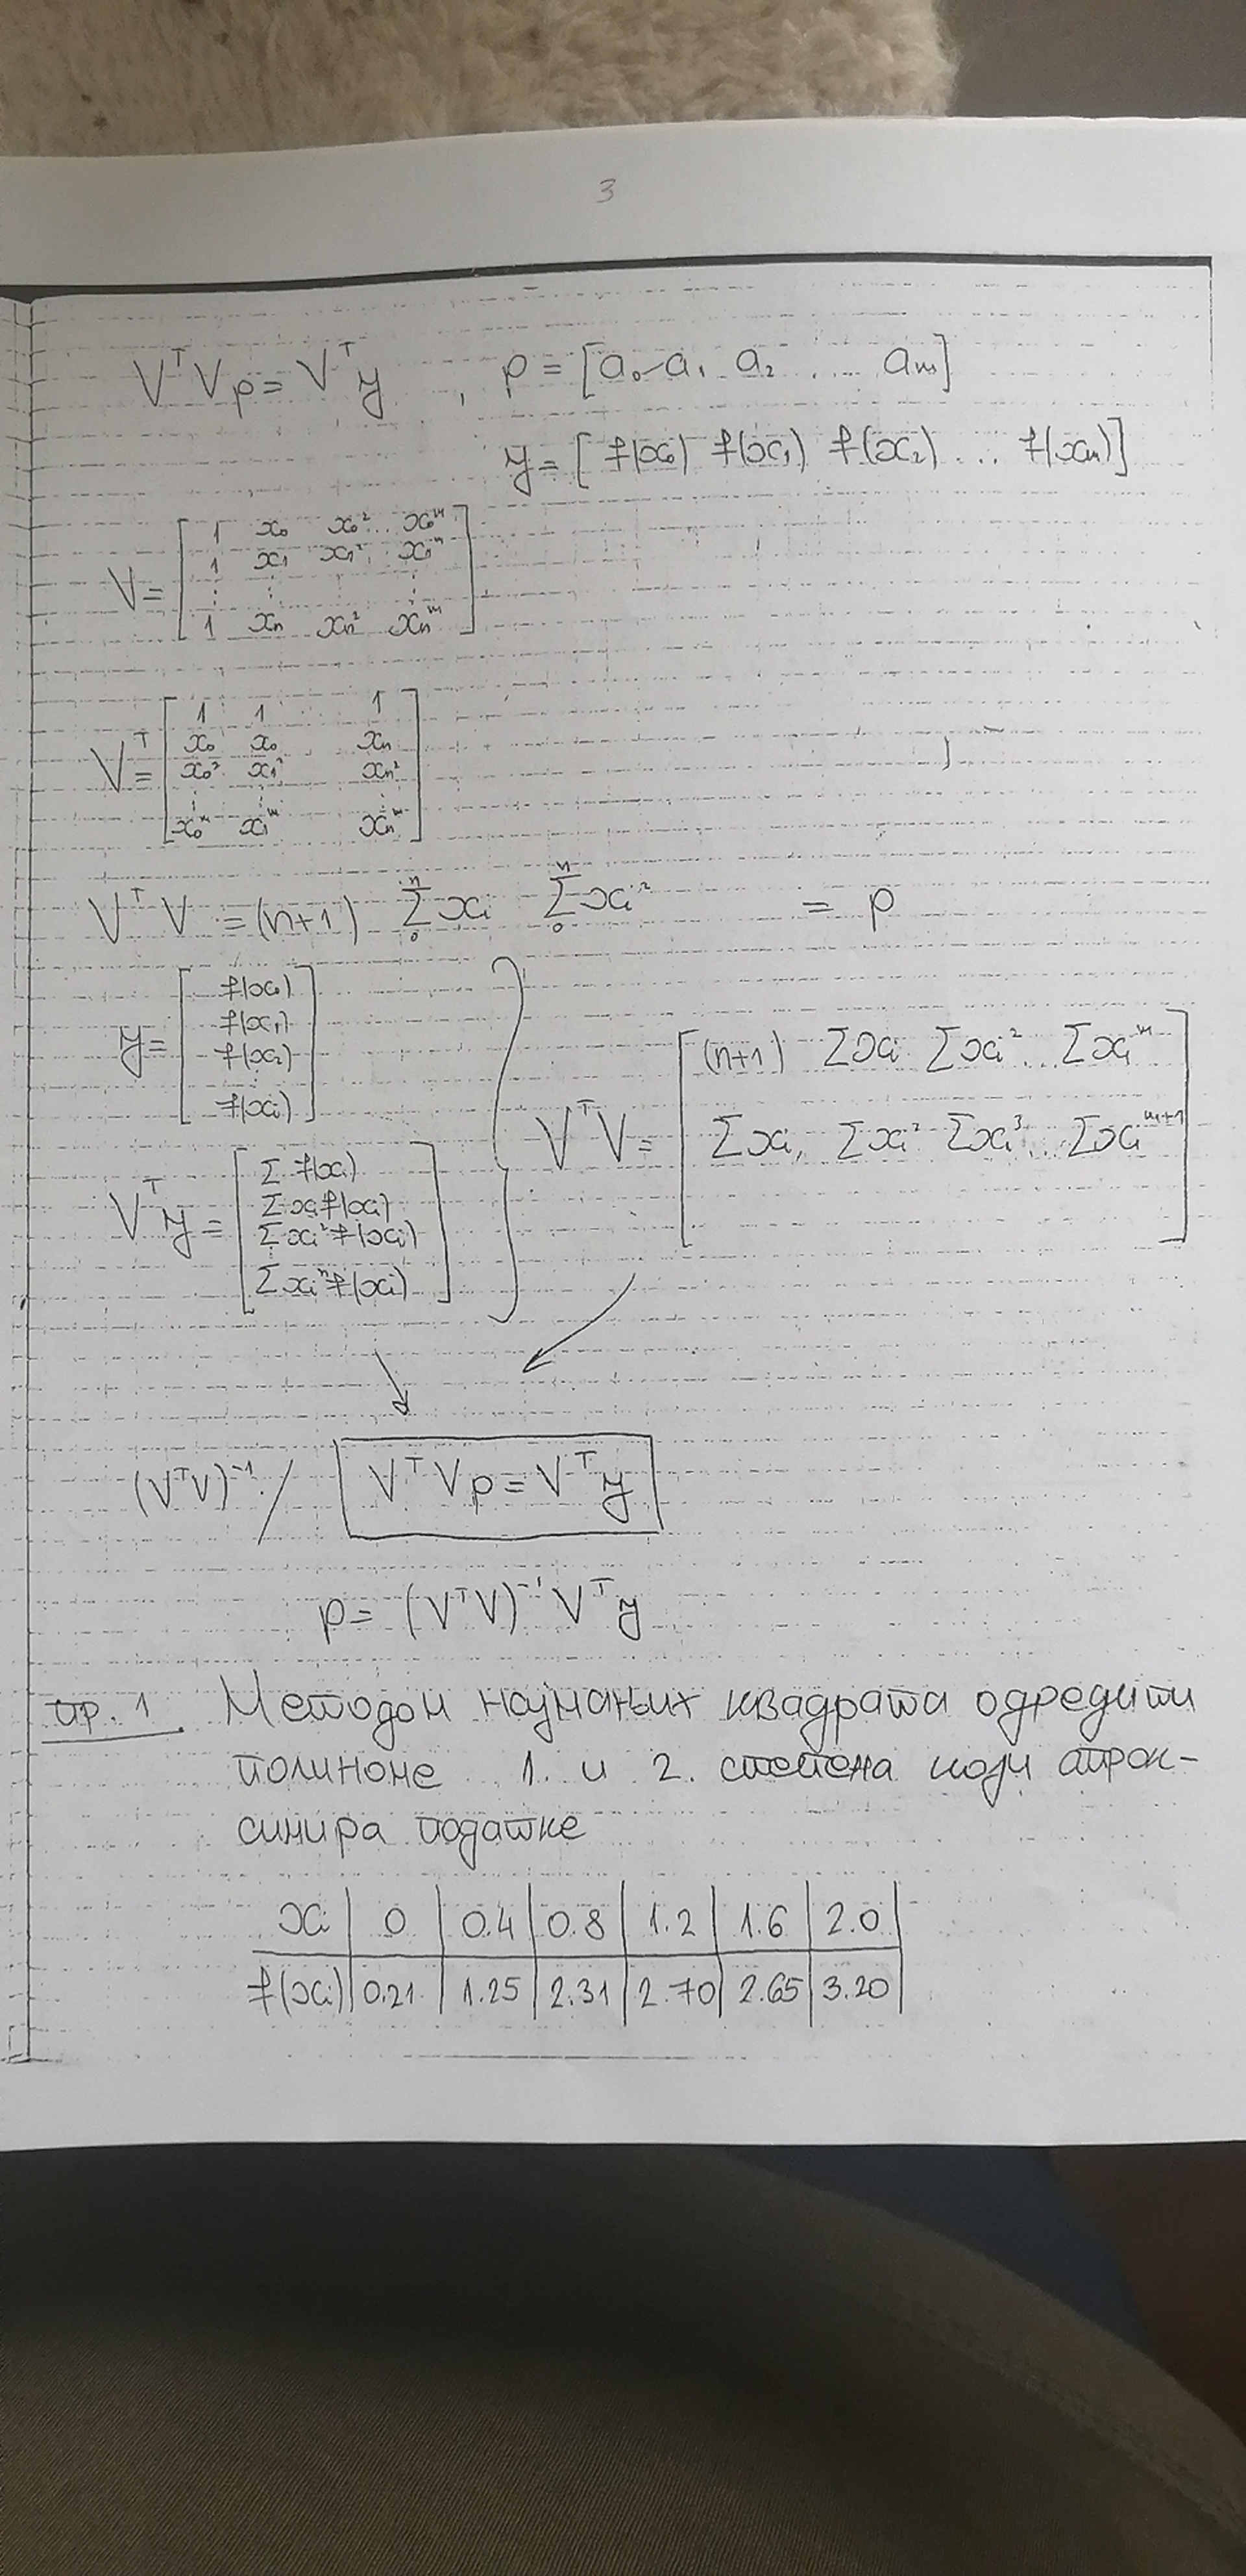 3
VᵀVp = Vᵀy , p = [a₀ a₁ a₂ .... aₘ]
y = [ f(x₀) f(x₁) f(x₂) ... f(xₙ)]
V = [ 1 x₀ x₀² ... x₀ᵐ
1 x₁ x₁² x₁ᵐ
⋮ ⋮ ⋮
1 xₙ xₙ² xₙᵐ ]
Vᵀ = [ 1 1 1
x₀ x₀ xₙ
x₀² x₁² xₙ²
⋮ ⋮ ⋮
x₀ᵐ x₁ᵐ xₙᵐ ]
VᵀV = (n+1) ∑₀ⁿ xᵢ ∑₀ⁿ xᵢ² = p
y = [ f(x₀)
f(x₁)
f(x₂)
⋮
f(xᵢ) ]
Vᵀy = [ ∑ f(xᵢ)
∑ xᵢ f(xᵢ)
∑ xᵢ² f(xᵢ)
⋮
∑ xᵢⁿ f(xᵢ) ]
VᵀV = [ (n+1) ∑xᵢ ∑xᵢ² ... ∑xᵢᵐ
∑xᵢ, ∑xᵢ² ∑xᵢ³ ... ∑xᵢᵐ⁺¹ ]
(VᵀV)⁻¹· / VᵀVp = Vᵀy
p = (VᵀV)⁻¹Vᵀy
пр. 1. Методом најмањих квадрата одредити
полиноме 1. и 2. степена који апрок-
симира податке
xᵢ | 0 | 0.4 | 0.8 | 1.2 | 1.6 | 2.0 |
f(xᵢ) | 0.21 | 1.25 | 2.31 | 2.70 | 2.65 | 3.20 |